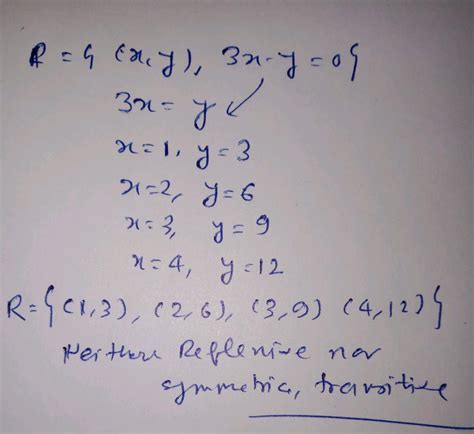 R = { (x, y), 3x - y = 0 }
3x = y
x = 1, y = 3
x = 2, y = 6
x = 3, y = 9
x = 4, y = 12
R = { (1,3), (2,6), (3,9) (4,12) }
Neither Reflenive nor
symmetric, transitive